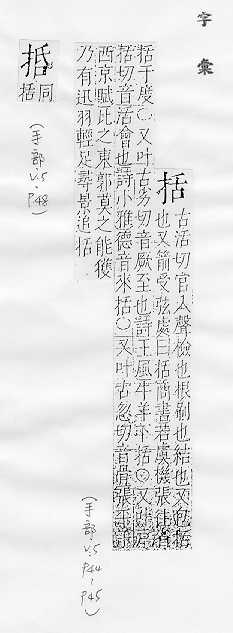 字彙
括
古活切官入聲檢也根刷也結也又包括
也又箭受弦處曰括商書若虞機張往省
括于度〇又叶古勞切音厥至也詩王風牛羊下括〇又
括切音活會也詩小雅德音來括〇又叶古忽切音骨張平
西京賦瓦之東郭莫之能獲
乃有迅羽輕足尋景追括
㧉
同括
(手部 V.5, P.48)
(手部 V.5 P.44-P.45)